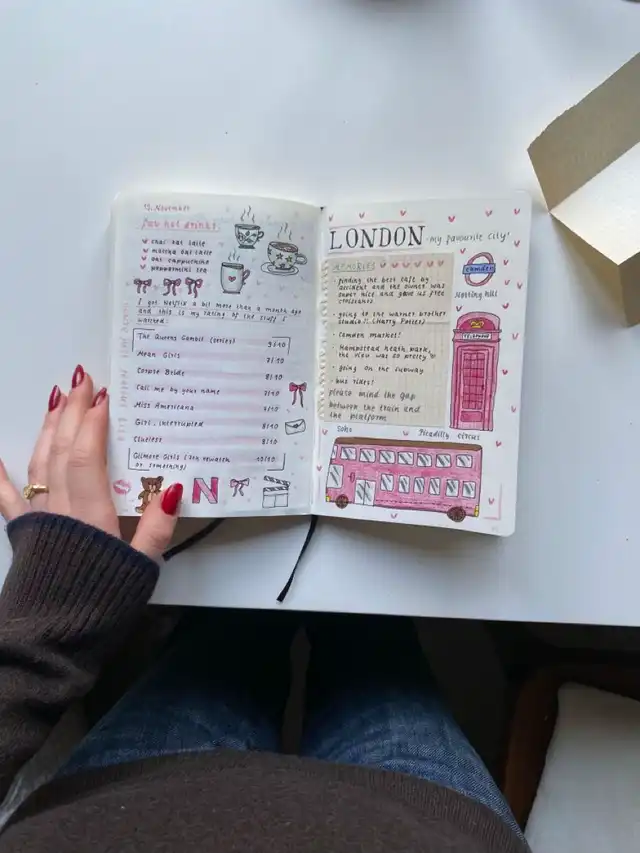 13. November
fav hot drinks
chai oat latte
matcha oat latte
oat cappuchino
peppermint tea
I got Netflix a bit more than a month ago
and this is my rating of the stuff I
watched:
The Queens Gambit (series) 9/10
Mean Girls 7/10
Corpse Bride 8/10
Call me by your name 7/10
Miss Americana 7/10
Girl, interrupted 8/10
Clueless 8/10
Gilmore Girls (3th rewatch 10/10
or something)
N
LONDON
"my favourite city"
MEMORIES
· finding the best cafe by
accident and the owner was
super nice and gave us free
croissants
· going to the warner brother
studio!! (Harry Potter)
· Camden market!
· Hampstead heath park,
the view was so pretty
· going on the subway
· bus rides!
please mind the gap
between the train and
the platform
camden
Notting hill
TELEPHONE
Soho
Picadilly circus